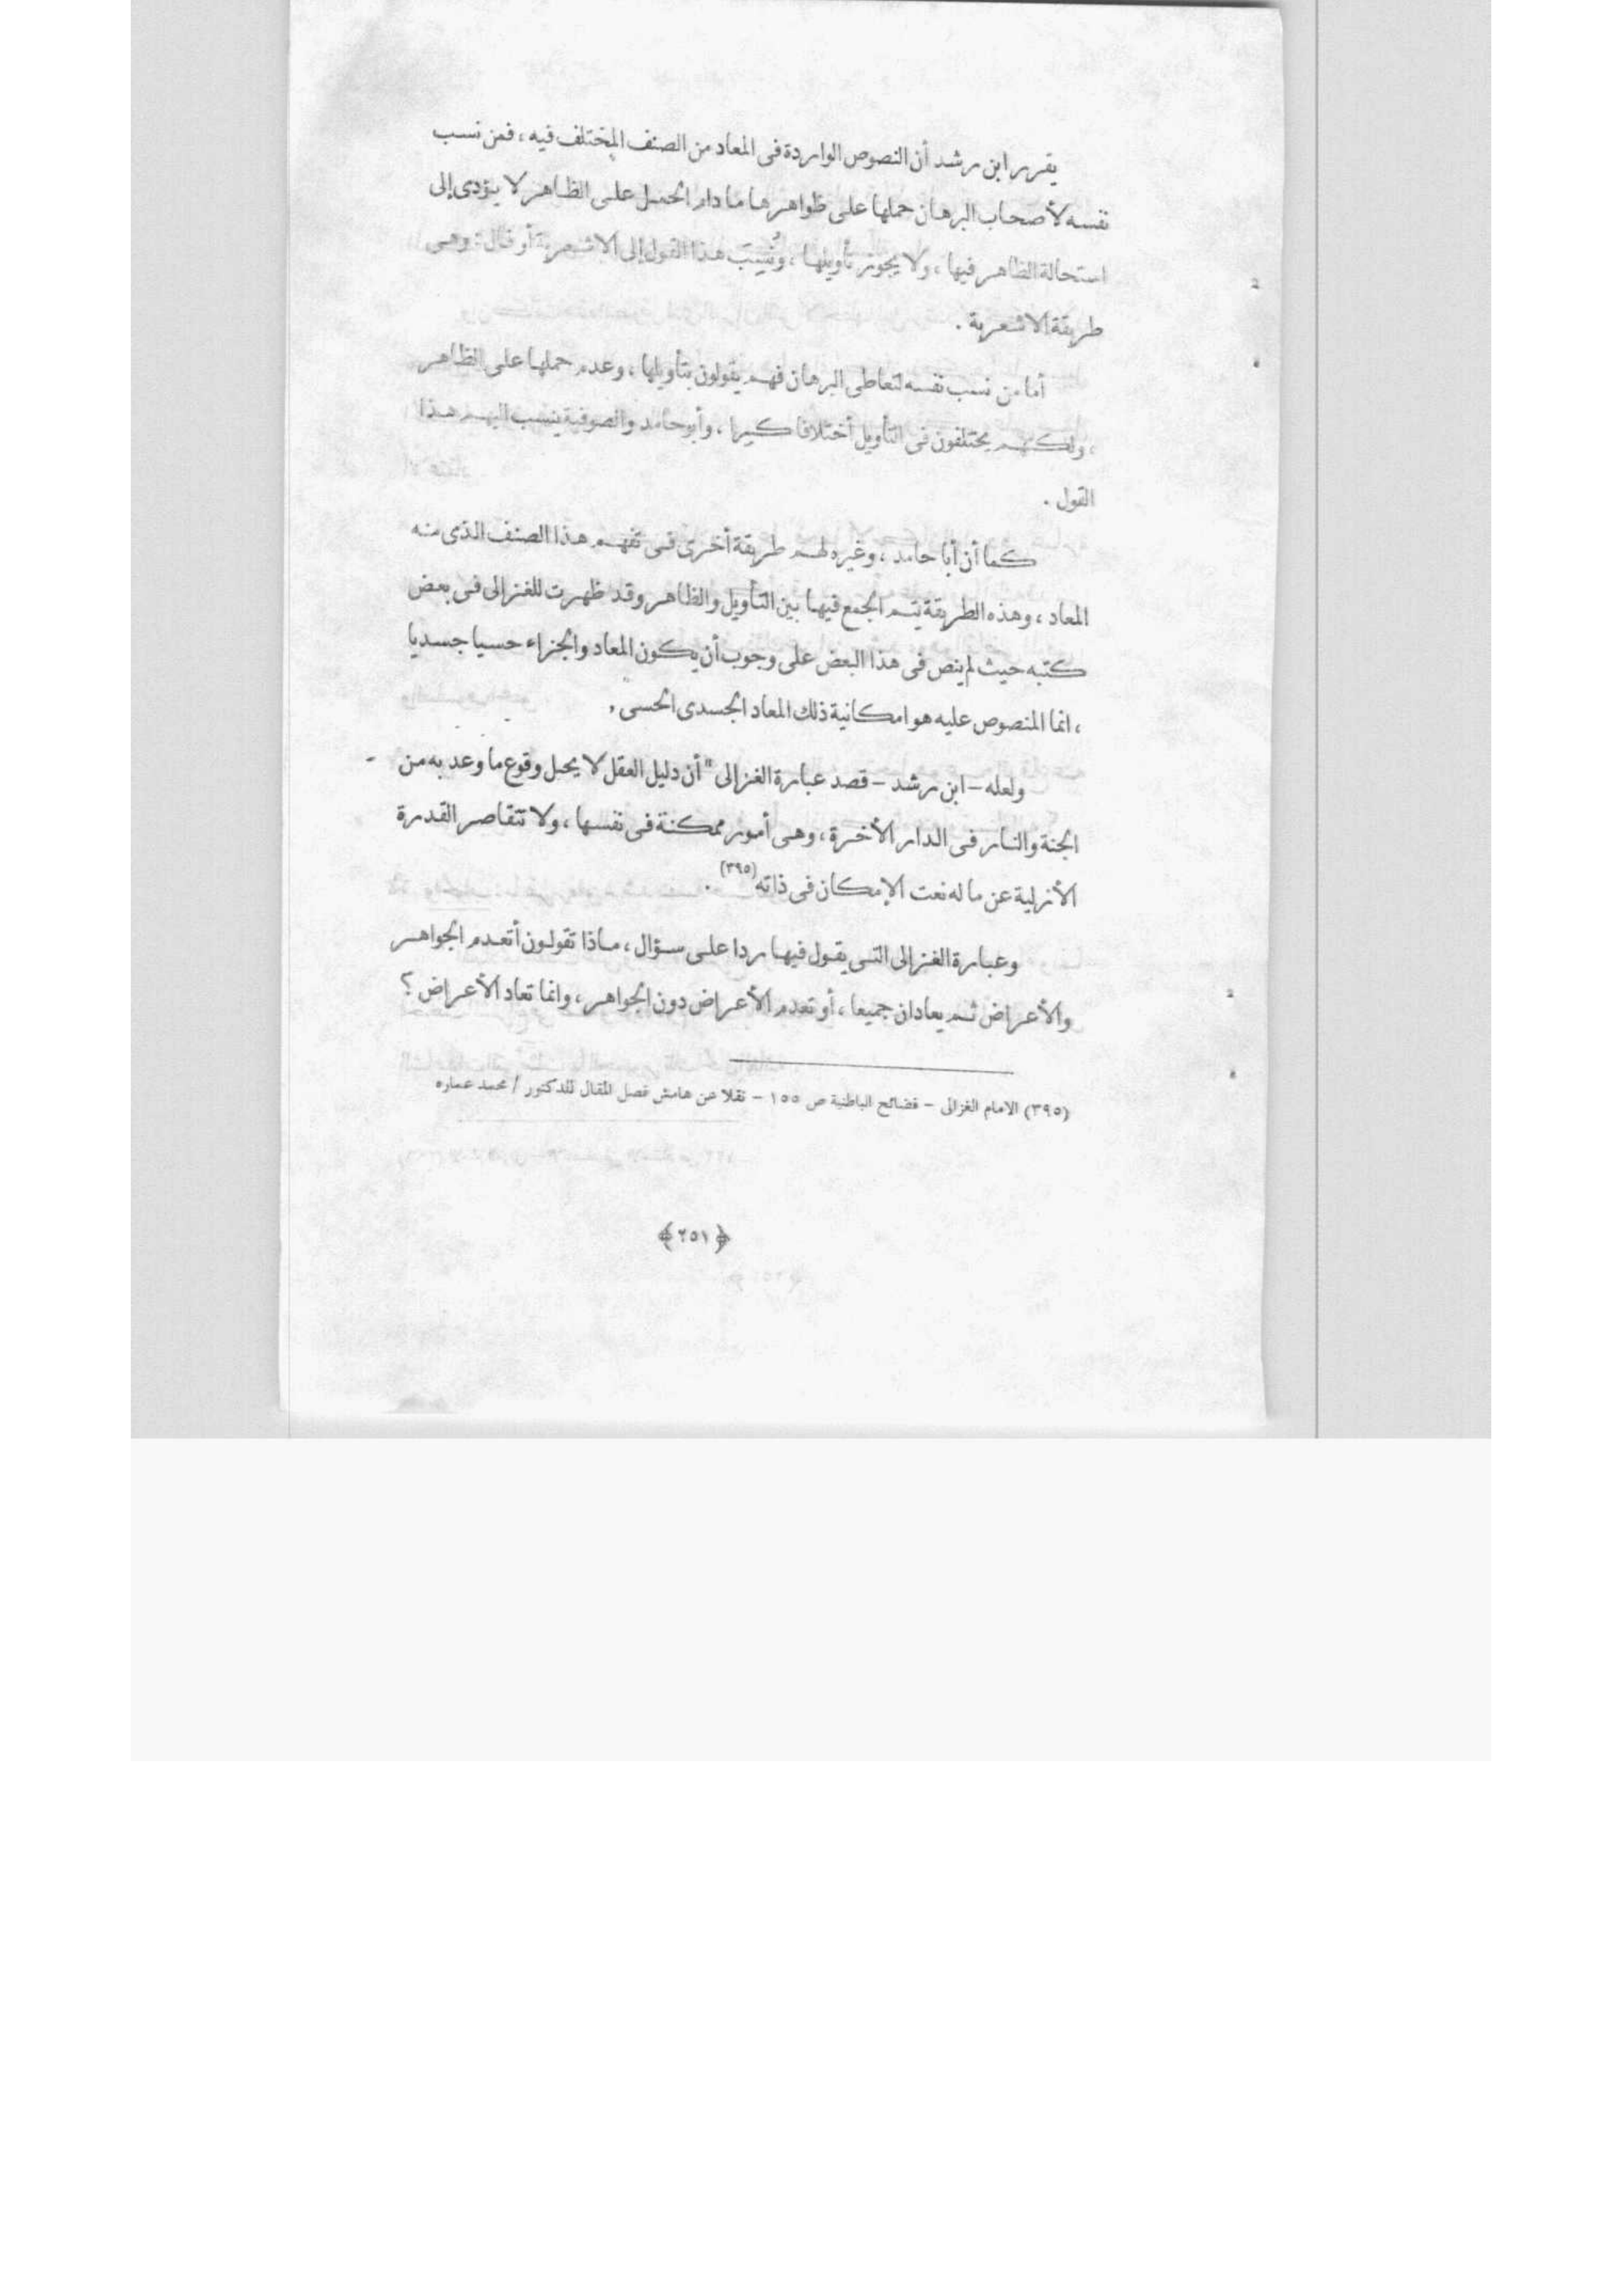 يقرر ابن رشد أن النصوص الواردة فى المعاد من الصنف المختلف فيه ، فمن نسب
نفسه لأصحاب البرهان حملها على ظواهرها ما دام الحمل على الظاهر لا يؤدى إلى
استحالة الظاهر فيها ، ولا يجوز تأويلها ، ونُسِبَ هذا القول إلى الاشعرية أو قال : وهى
طريقة الاشعرية .
أما من نسب نفسه لتعاطى البرهان فهم يقولون بتأويلها ، وعدم حملها على الظاهر
، ولكنهم يختلفون فى التأويل أختلافا كبيرا ، وأبو حامد والصوفية ينسب اليهم هذا
القول .
كما أن أبا حامد ، وغيره لهم طريقة أخرى فى تفهم هذا الصنف الذى منه
المعاد ، وهذه الطريقة يتم الجمع فيها بين التأويل والظاهر وقد ظهرت للغزالى فى بعض
كتبه حيث لم ينص فى هذا البعض على وجوب أن يكون المعاد والجزاء حسيا جسديا
، انما المنصوص عليه هو امكانية ذلك المعاد الجسدى الحسى .
ولعله – ابن رشد – قصد عبارة الغزالى " أن دليل العقل لا يحيل وقوع ما وعد به من
الجنة والنار فى الدار الأخرة ، وهى أمور ممكنة فى نفسها ، ولا تتقاصر القدرة
الأزلية عن ما له نعت الإمكان فى ذاته (٣٩٥) .
وعبارة الغزالى التى يقول فيها ردا على سؤال ، ماذا تقولون أتعدم الجواهر
والأعراض ثم يعادان جميعا ، أو تعدم الأعراض دون الجواهر ، وانما تعاد الأعراض ؟
(٣٩٥) الامام الغزالى – فضائح الباطنية ص ١٥٥ – نقلا عن هامش فصل المقال للدكتور / محمد عماره
﴿٢٥١﴾